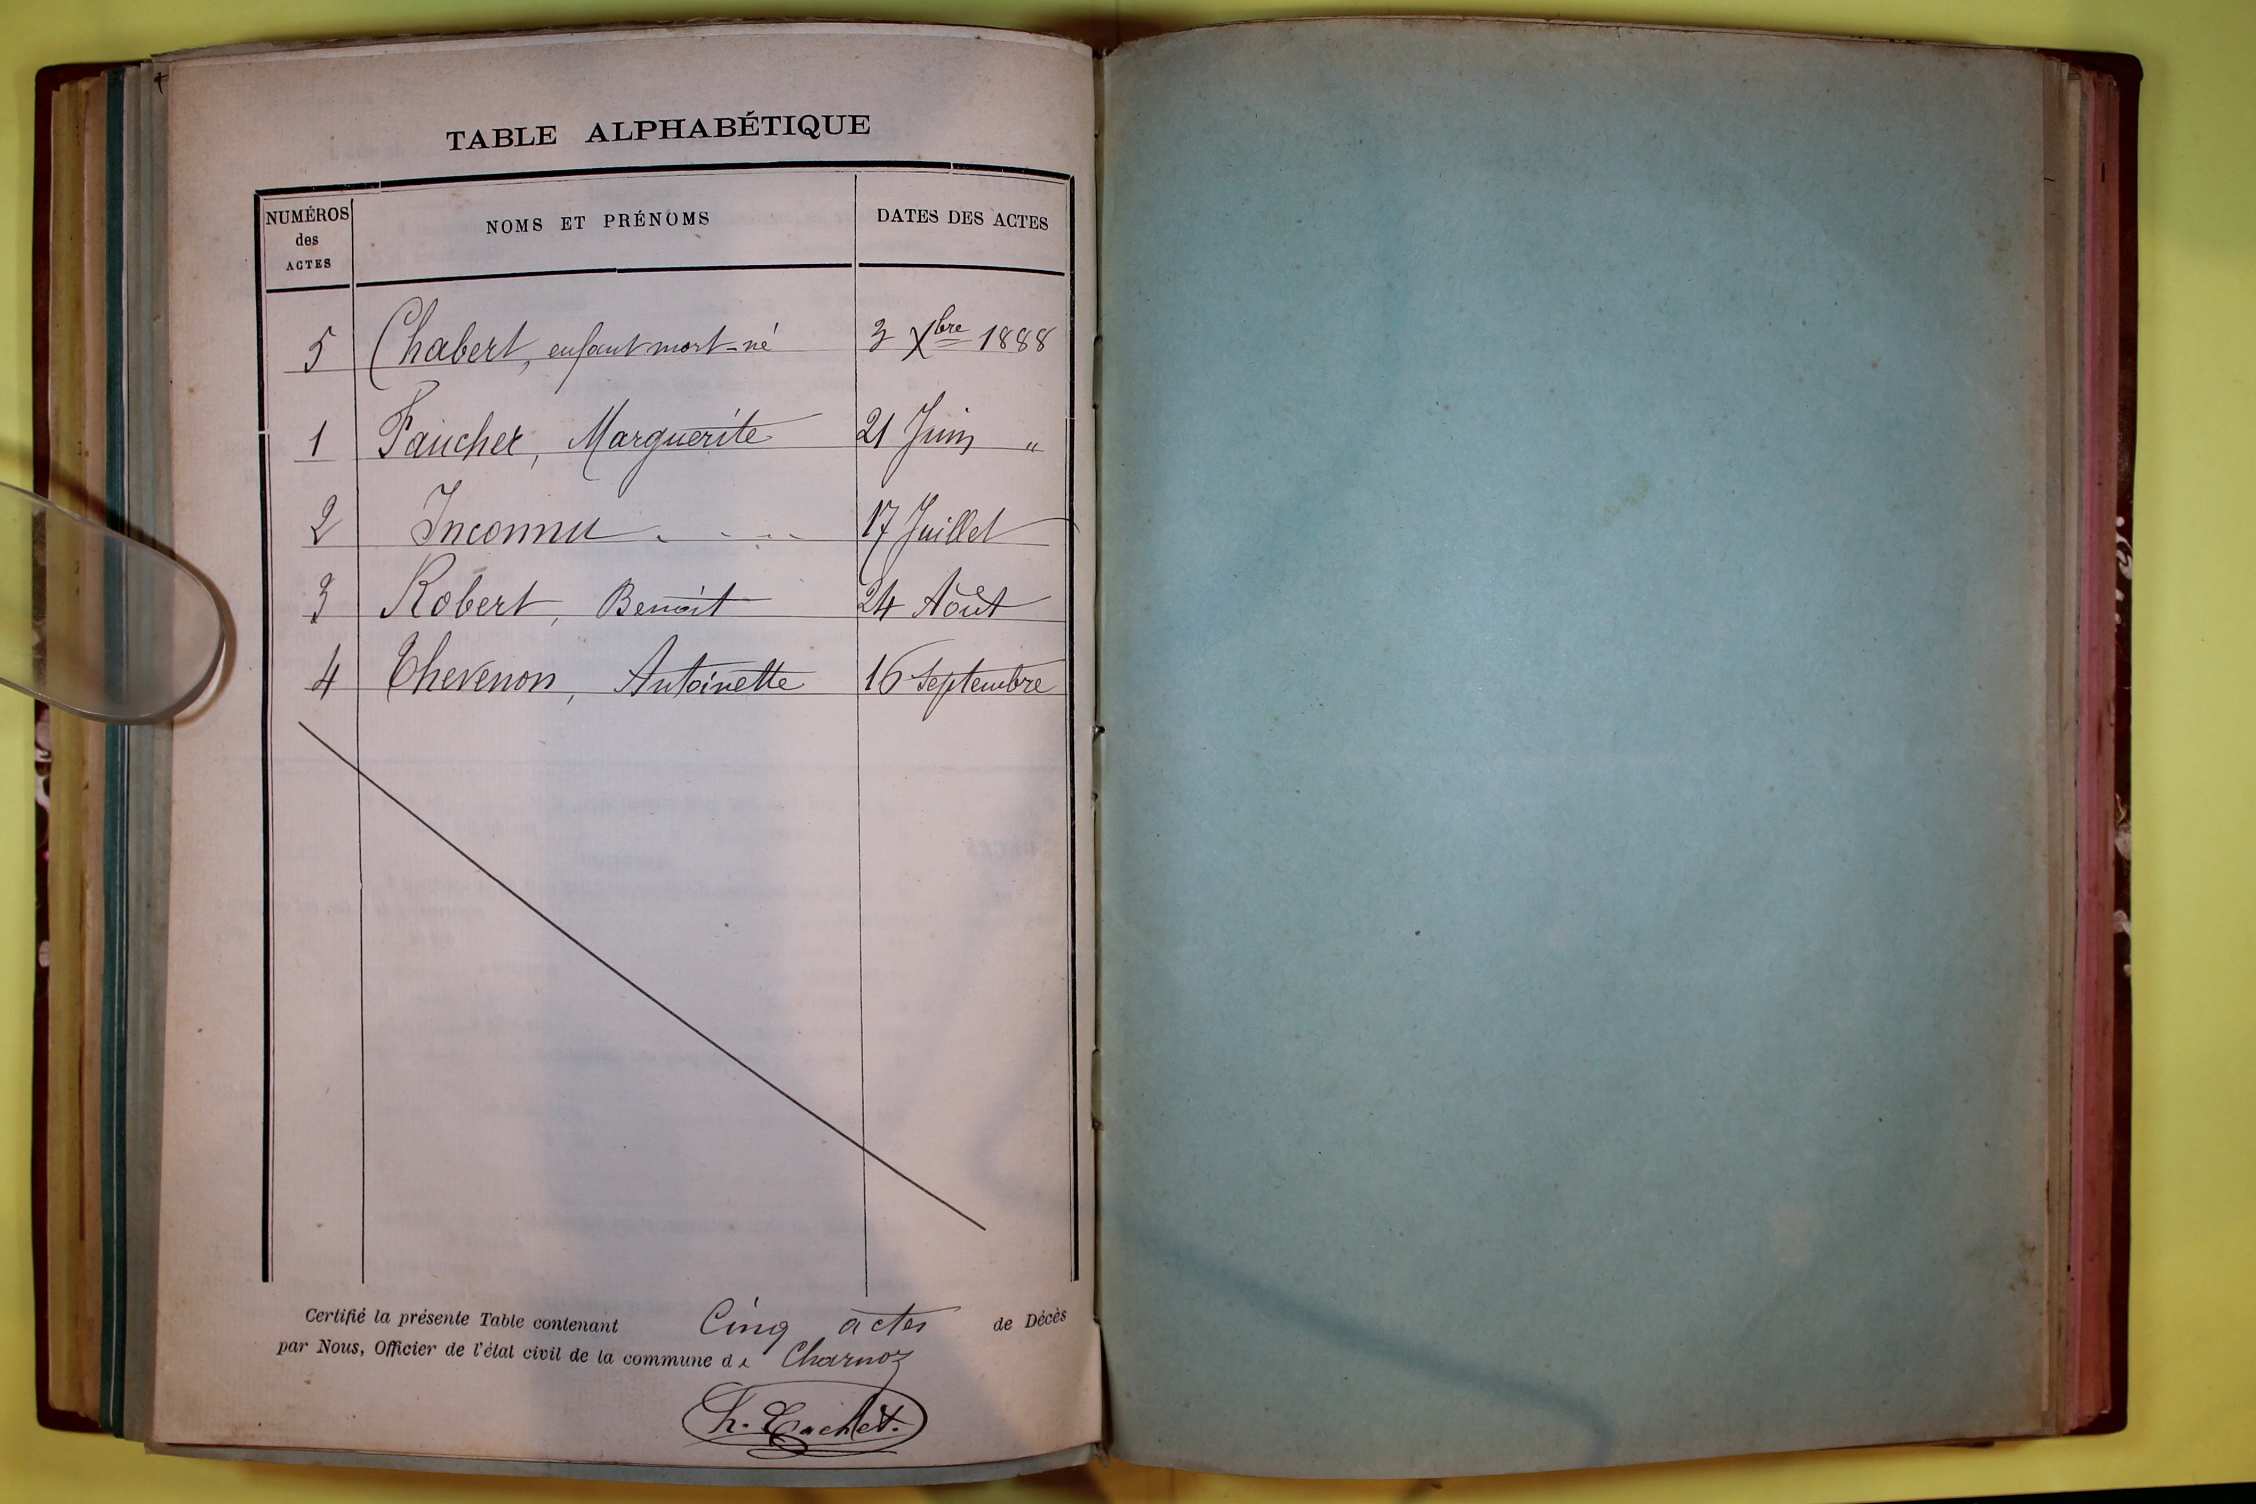 TABLE ALPHABÉTIQUE
NUMÉROS des ACTES NOMS ET PRÉNOMS DATES DES ACTES
5 Chabert, enfant mort-né 3 Xbre 1888
1 Faucher, Marguerite 21 Juin "
2 Inconnu 17 Juillet
3 Robert, Benoit 24 Août
4 Thevenon, Antoinette 16 Septembre
Certifié la présente Table contenant Cinq actes de Décès
par Nous, Officier de l'état civil de la commune de Charnoz